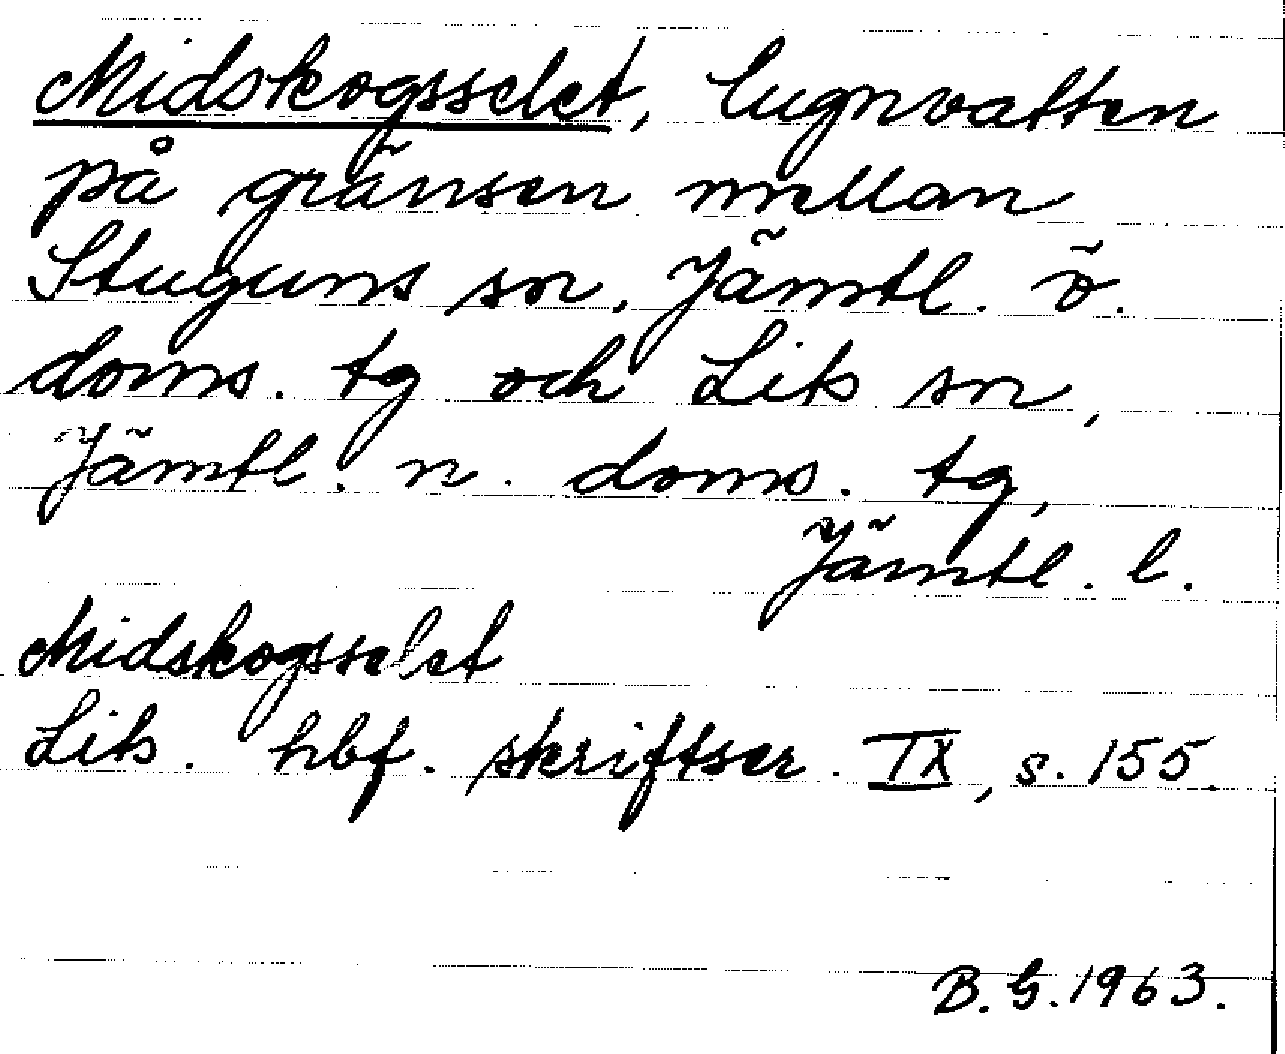 Midskogsselet, lugnvatten
på gränsen mellan
Stuguns sn, Jämtl. ö.
doms. tg och Lits sn,
Jämtl. n. doms. tg,
Jämtl. l.
Midskogsselet
Lits. hbf. skriftser. IX, s. 155.
B. G. 1963.